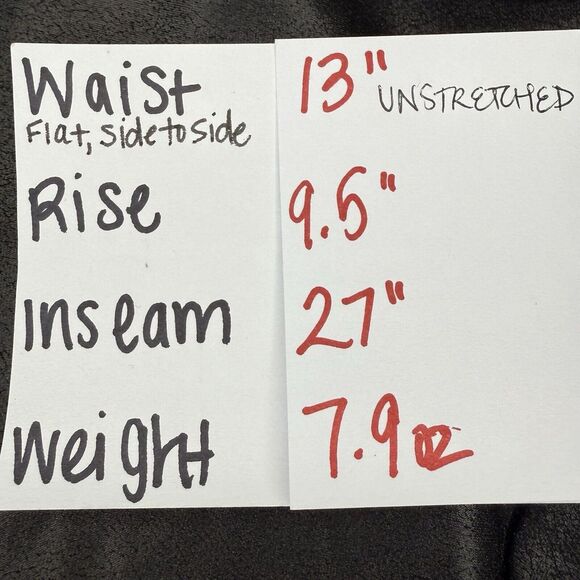 Waist 13" UNSTRETCHED
Flat, side to side
Rise 9.5"
Inseam 27"
Weight 7.9 oz